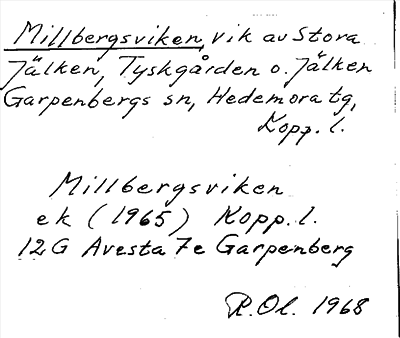 Millbergsviken, vik av Stora
Jälken, Tyskgården o. Jälken
Garpenbergs sn, Hedemora tg,
Kopp. l.
Millbergsviken
ek (1965) Kopp. l.
12G Avesta 7e Garpenberg
R.Ol. 1968